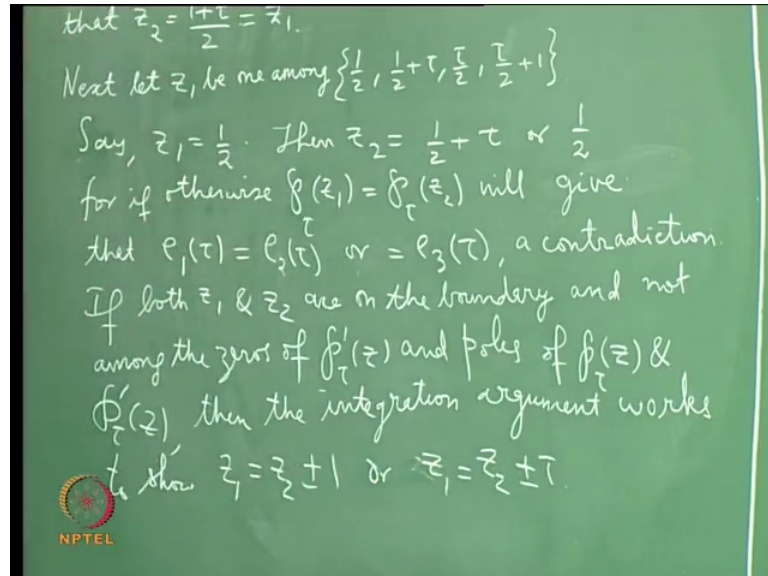 that z₂ = (1+τ)/2 = z₁.
Next let z₁ be one among {1/2, 1/2 + τ, τ/2, τ/2 + 1}
Say, z₁ = 1/2. Then z₂ = 1/2 + τ or 1/2
for if otherwise ℘_τ(z₁) = ℘_τ(z₂) will give
that e₁(τ) = e₂(τ) or = e₃(τ), a contradiction.
If both z₁ & z₂ are on the boundary and not
among the zeros of ℘'_τ(z) and poles of ℘_τ(z) &
℘'_τ(z) then the integration argument works
to show z₁ = z₂ ± 1 or z₁ = z₂ ± τ.
NPTEL